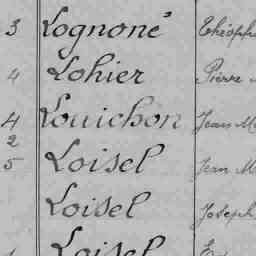 3 Lognoné Théoph
4 Lohier Pierre
4 Louichon Jean M
2
5 Loisel Jean M
Loisel Joseph
Loisel